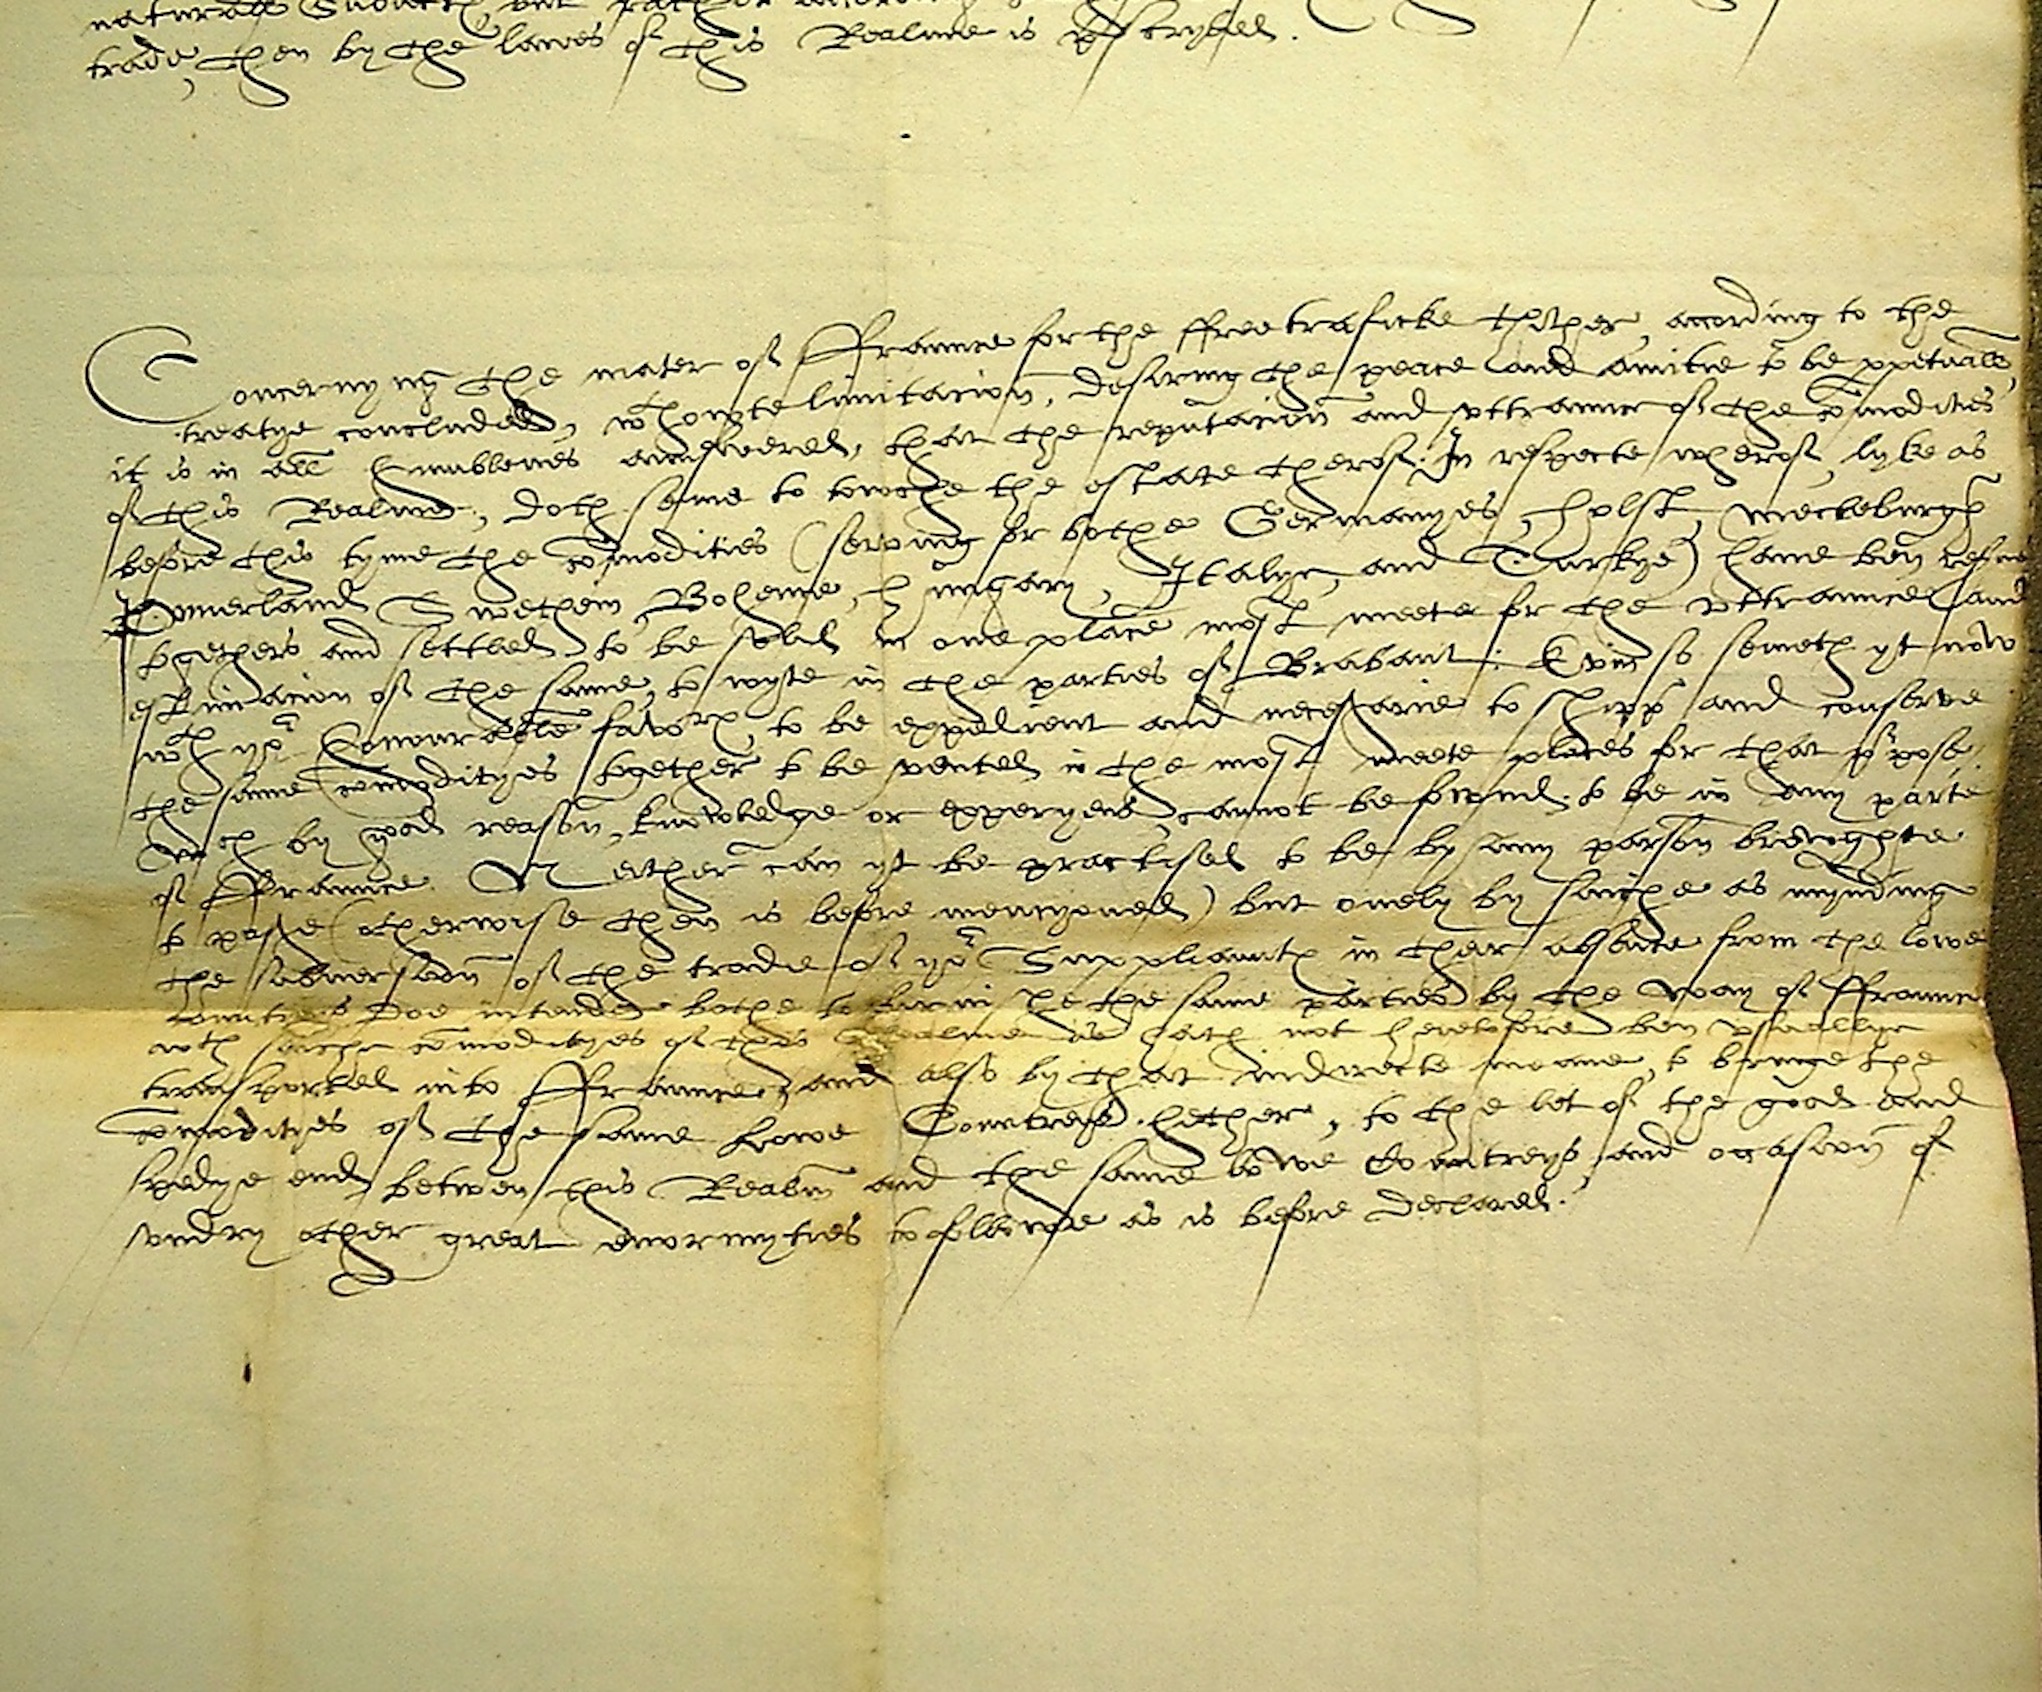 naturall Subiectes but rather
trade, then by the lawes of this Realme is prescrybed.
Concernyng the mater of Ffraunce for the ffree traficke thither, according to the
treatye concluded, wthowte limitacion, desiring the peace and amitie to be ppetuall,
it is in all humblenes aunswered, that the reputacion and vttraunce of the comodities
of this Realme, doth seme to towche the estate therof. In respecte wherof, lyke as
before this tyme the comodities (serving for bothe Germanyes, Holst, Meckeburgh
Pomerland Swethen, Boheme, Hungary, Italye, and Turkye) haue ben
togethers and settled to be sold in one place most meete for the vttraunce and
estimacion of the same, to wyte in the parties of Brabant: Evin so semeth yt now
wth yor honourable favors, to be expedient and necessarie to shipp and conserve
the same comodityes together to be vented in the most meete places for that prpose.
Wch by good reason, knowledge or experyens, cannot be fownd to be in any parte
of Ffraunce. Neither can yt be practised to be by any parson browghte
to passe (otherwise then is before mencyoned) but onely by suiche as mynding
the subuersion of the trade of yor Suppliauntes in ther absence from the lowe
countries doe intende bothe to furnishe the same parties by the way of Ffraunce
wth suiche comodityes of this Realme as hath not heretofore ben vsuallye
transported into Ffraunce, and also by that indirecte meane, to bringe the
comodityes of the same Lowe Countreys hether, to the let of the good and
spedye end betwen this Realm and the same lowe Countreys and occasion of
sondry other great enormyties to followe as is before declared.